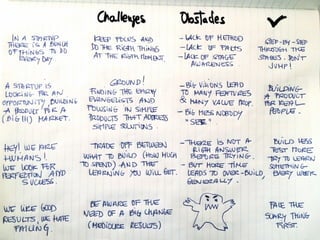 Challenges
Obstacles
IN A STARTUP
THERE IS A BUNCH
OF THINGS TO DO
EVERY DAY
KEEP FOCUS AND
DO THE RIGHT THINGS
AT THE RIGHT MOMENT.
- LACK OF METHOD
- LACK OF FACTS
- LACK OF STAGE
AWARENESS
STEP-BY-STEP
THROUGH THE
STAGES. DON'T
JUMP!
A STARTUP IS
LOOKING FOR AN
OPPORTUNITY, BUILDING
A PRODUCT FOR A
(BIG!!!) MARKET.
GROUND!
FINDING THE EARLY
EVANGELISTS AND
FOCUSING IN SIMPLE
PRODUCTS THAT ADDRESS
SIMPLE SOLUTIONS
- BIG VISIONS LEAD
TO MANY FEATURES
& MANY VALUE PROP.
- BIG MESS NOBODY
"SEE"
BUILDING
A PRODUCT
FOR REAL
PEOPLE.
HEY! WE ARE
HUMANS!
WE LOOK FOR
PERFECTION AND
SUCCESS.
TRADE OFF BETWEEN
WHAT TO BUILD (HOW MUCH
TO SPEND) AND THE
LEARNING YOU WILL GET.
- THERE IS NOT A
RIGHT ANSWER
BEFORE TRYING.
- BUT MORE TIME
LEADS TO OVER-BUILD,
GENERALLY.
BUILD LESS
TEST MORE
TRY TO LEARN
SOMETHING
EVERY WEEK
WE LIKE GOOD
RESULTS, WE HATE
FAILING.
BE AWARE OF THE
NEED OF A BIG CHANGE
(MEDIOCRE RESULTS)
FACE THE
SCARY THING
FIRST.